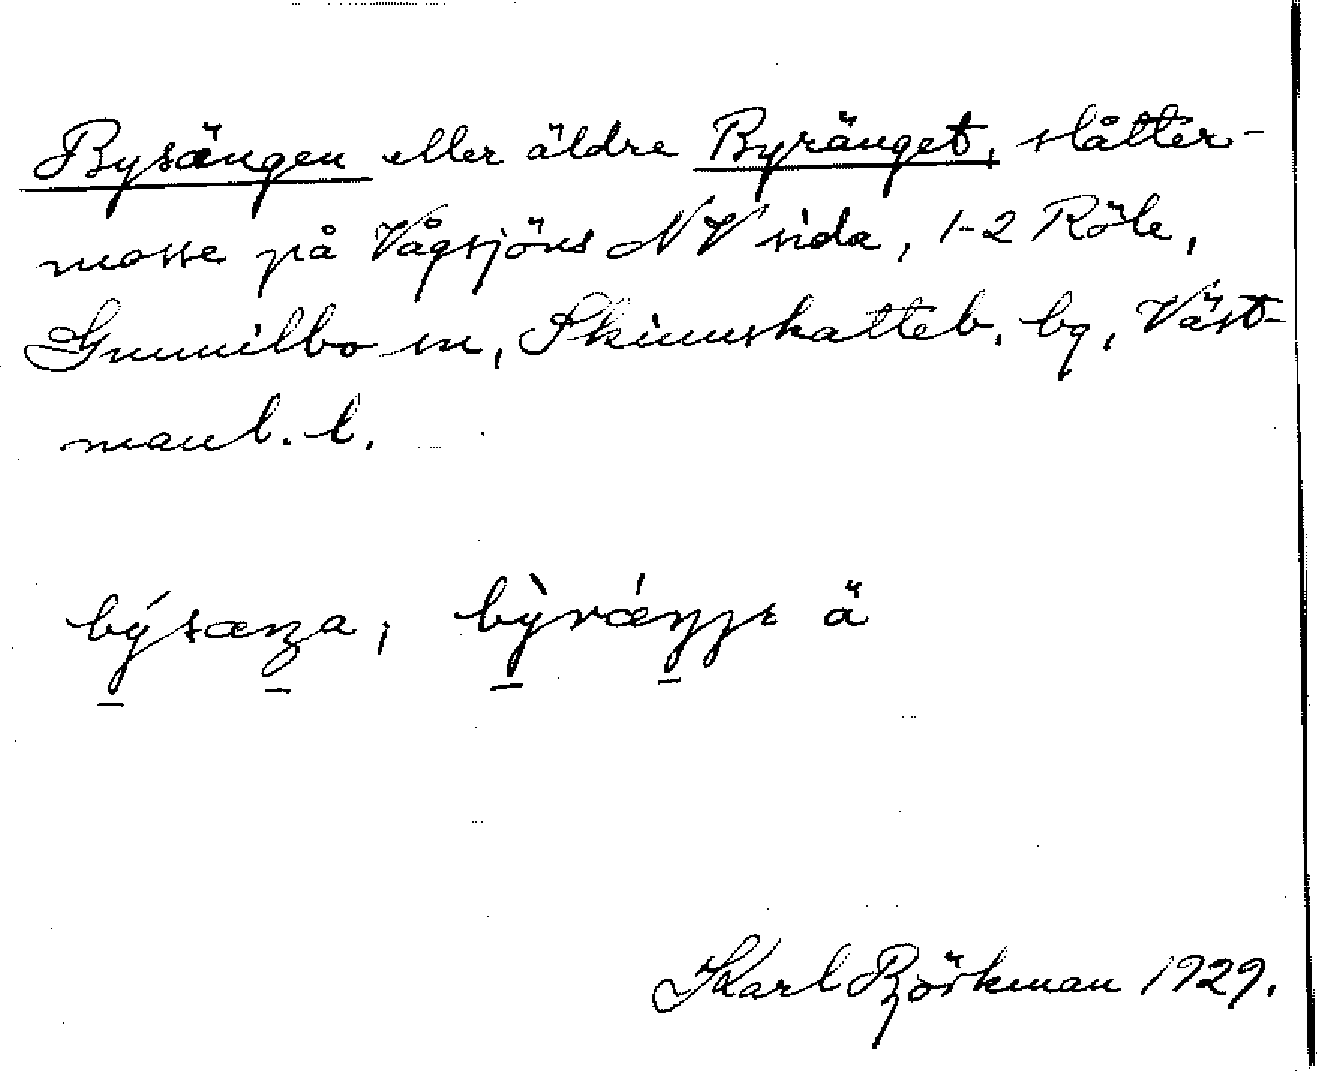 Bysängen eller äldre Byränget, slåtter-
mosse på Vågsjöns NV sida, 1-2 Röle,
Gunnilbo sn, Skinnskatteb. bg, Väst-
manl. l.
býsæŋa; bỳrǽŋge ä
Karl Björkman 1929.